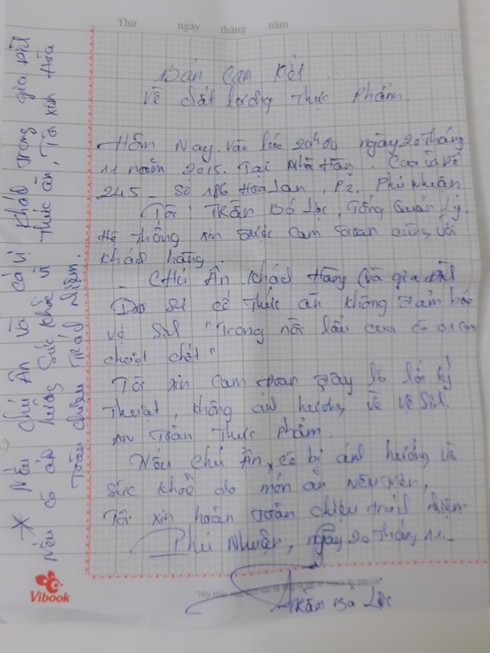 Thứ ngày tháng năm
Bản Cam Kết
Về chất lượng thực Phẩm
Hôm Nay. Vào lúc 20h00 ngày 20 tháng
11 năm 2015. Tại Nhà Hàng. Cua
245 - Số 186 Hoa Lan, P2. Phú Nhuận
Tôi TRẦN Bá Lộc, Tổng Quản Lý
Hệ thống xin được Cam đoan cùng với
khách hàng.
- Chú Ân khách Hàng (và gia đình
Do sự cố thức ăn không đảm bảo
vệ sinh "Trong nồi lẩu cua có con
chuột chết"
Tôi xin Cam đoan đây là lỗi kỹ
thuật, không ảnh hưởng về vệ sinh.
An toàn thực phẩm.
Nếu chú Ân, có bị ảnh hưởng về
sức khoẻ do món ăn nêu trên,
Tôi xin hoàn toàn chịu trách nhiệm
Phú Nhuận, ngày 20 tháng 11
Trần Bá Lộc
* Nếu chú Ân và các vị khách trong gia đình
nếu có ảnh hưởng sức khoẻ vì thức ăn, Tôi xin hoàn
toàn chịu trách nhiệm.
Vibook